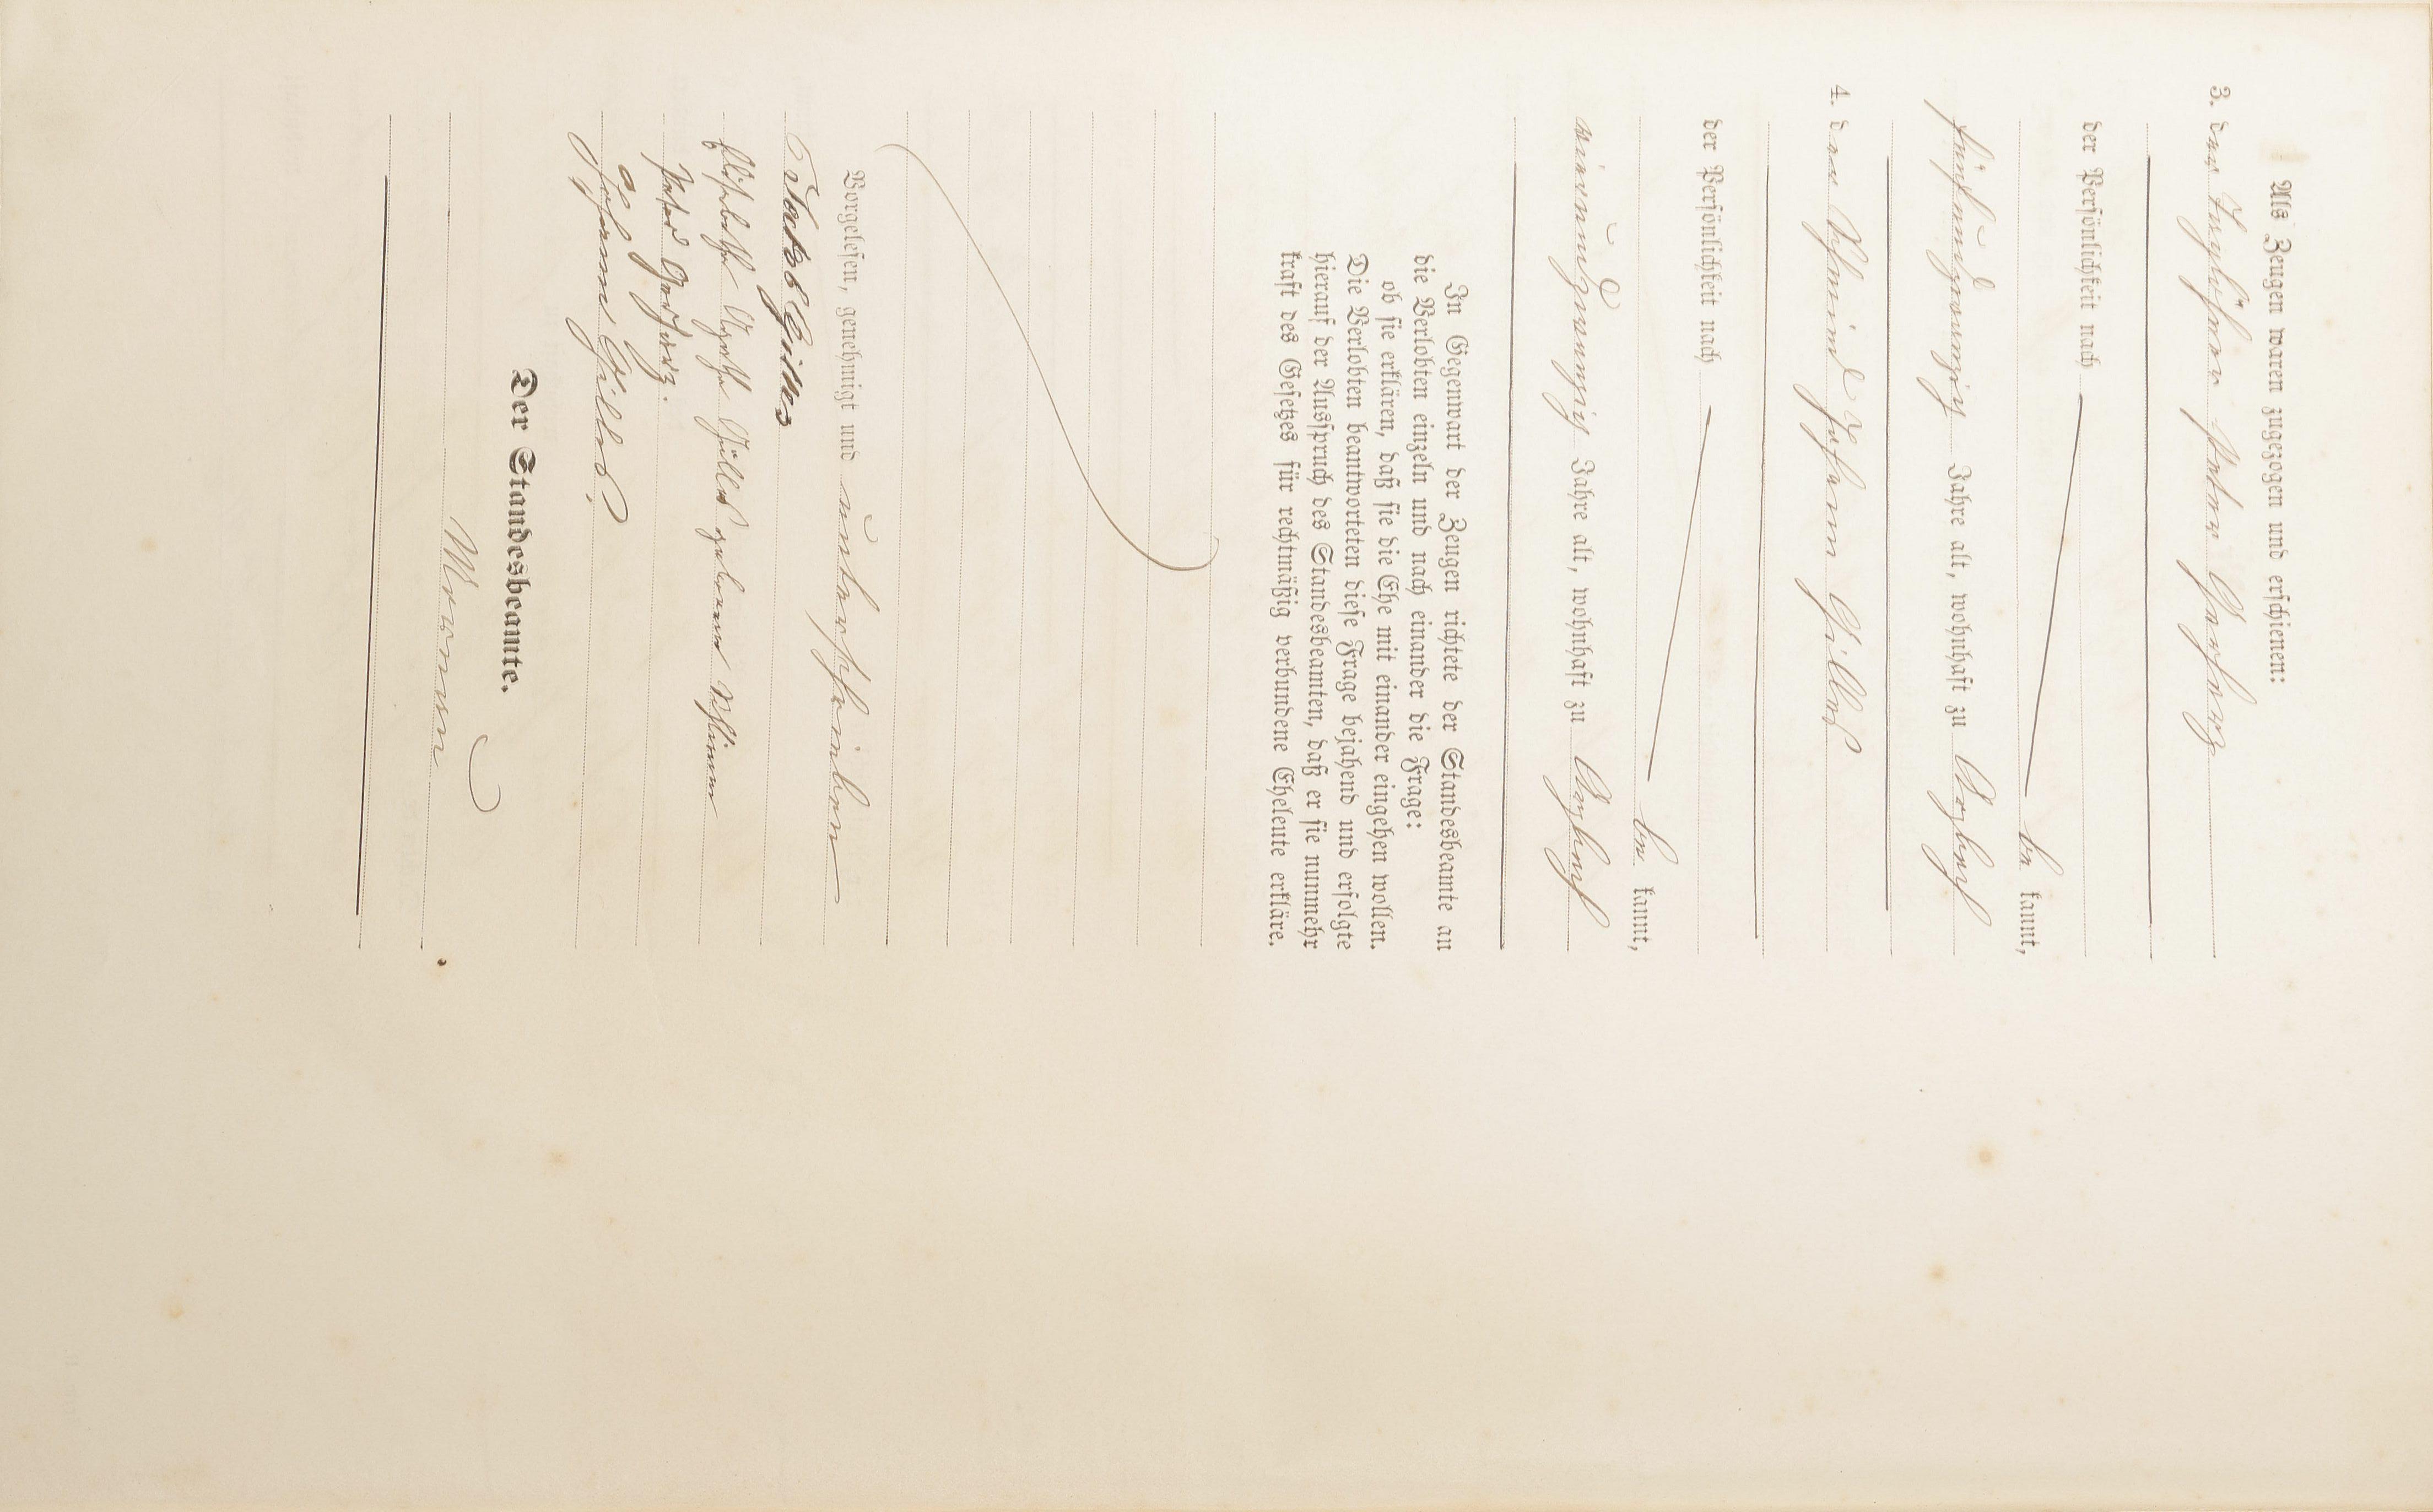 Als Zeugen waren zugezogen und erschienen:
3. der Tagelöhner Peter Gerharz
der Persönlichkeit nach
be kannt,
fünfundzwanzig Jahre alt, wohnhaft zu
4. der Schmied Johann Gilles
der Persönlichkeit nach
be kannt,
vierundzwanzig Jahre alt, wohnhaft zu
In Gegenwart der Zeugen richtete der Standesbeamte an
die Verlobten einzeln und nach einander die Frage:
ob sie erklären, daß sie die Ehe mit einander eingehen wollen.
Die Verlobten beantworteten diese Frage bejahend und erfolgte
hierauf der Ausspruch des Standesbeamten, daß er sie nunmehr
kraft des Gesetzes für rechtmäßig verbundene Eheleute erkläre.
Vorgelesen, genehmigt und unterschrieben
Jakob Gilles
Elisabetha Agatha Gilles geborene
Peter Gerharz.
Johann Gilles.
Der Standesbeamte.